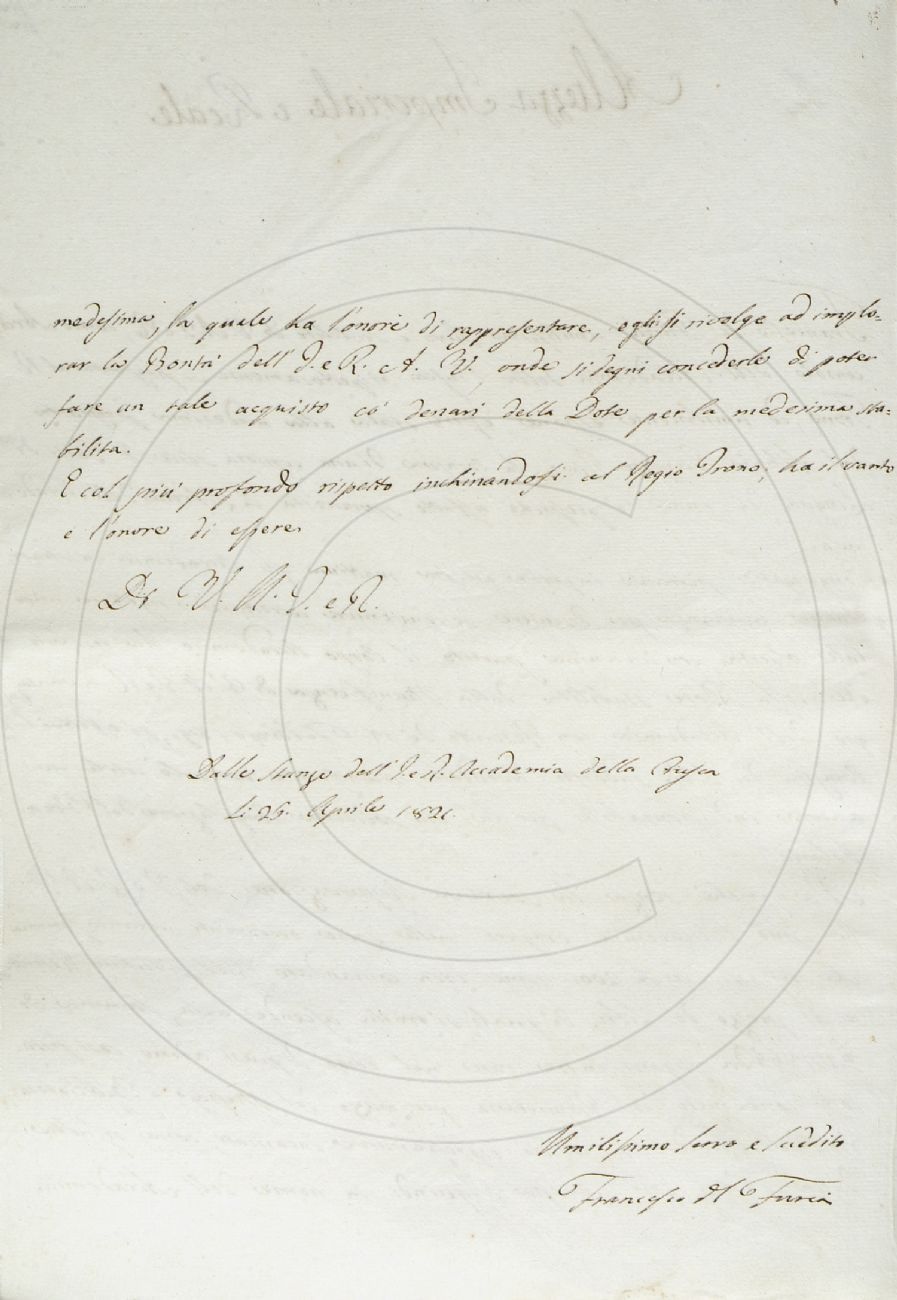 medesima, la quale ha l'onore di rappresentare, egli si rivolge ad implo=
rar la Bontà dell' I. e R. A. V., onde si degni concederle di poter
fare un tale acquisto co' denari della Dote per la medesima sta=
bilita.
E col più profondo rispetto inchinandosi al Regio Trono, ha il vanto
e l'onore di essere
Di V. A. I. e R.
Dalle Stanze dell' I. e R. Accademia della Crusca
Li 26. Aprile 1821.
Umilissimo Servo e Suddito
Francesco del Furia